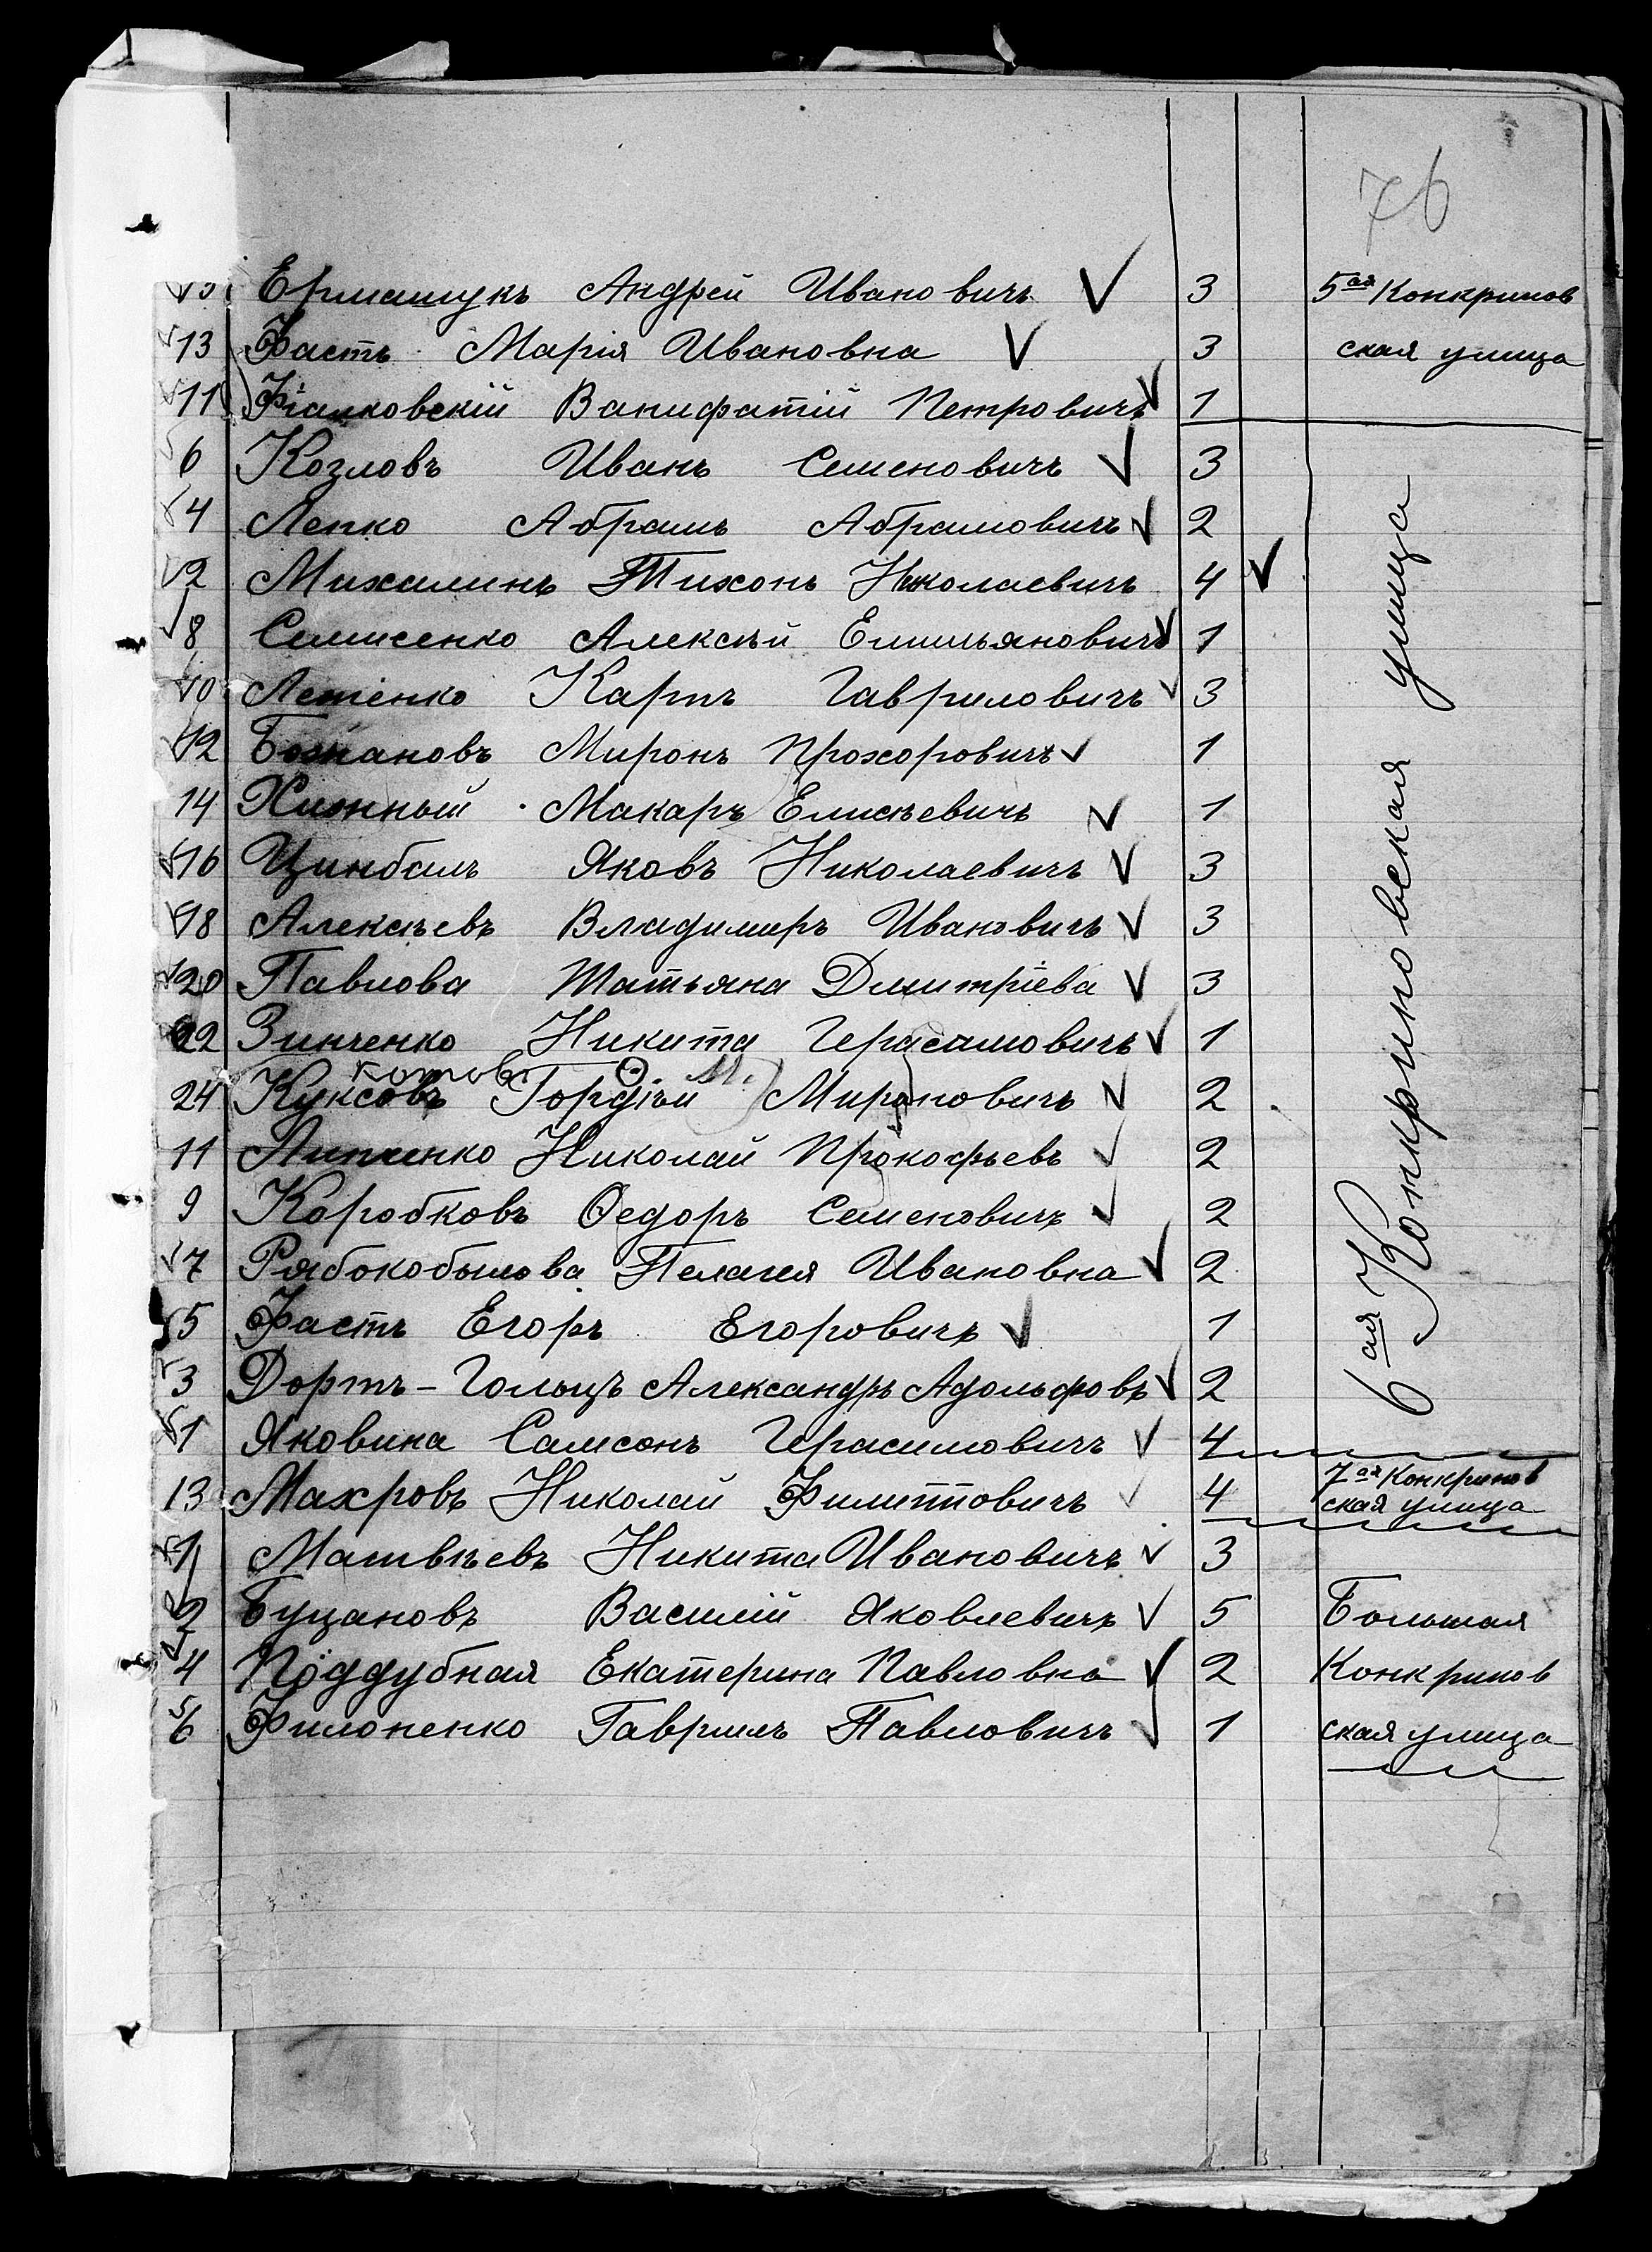 76
15 Ермашукъ Андрей Ивановичъ 3 5ая Конкринов
13 Фастъ Марія Ивановна 3 ская улица
11 Фіалковскій Ванифатій Петровичъ 1
6 Козловъ Иванъ Семеновичъ 3
4 Лепко Абрамъ Абрамовичъ 2
2 Михалинъ Тихонъ Николаевичъ 4
8 Семисенко Алексѣй Емильяновичъ 1
10 Летенко Карпъ Гавриловичъ 3
12 Божановъ Миронъ Прохоровичъ 1
14 Хижный Макаръ Елисѣевичъ 1
16 Цинбалъ Яковъ Николаевичъ 3
18 Алексѣевъ Владимиръ Ивановичъ 3
20 Павлова Татьяна Дмитріева 3
22 Зинченко Никита Герасамовичъ 1
24 Куксовъ Гордѣй Мироновичъ 2
11 Липченко Николай Прокофьевъ 2
9 Коробковъ Ѳедоръ Семеновичъ 2
7 Рябокобылова Пелагея Ивановна 2
5 Фастъ Егоръ Егоровичъ 1
3 Дортъ-Гольцъ Александръ Адольфовъ 2
1 Яковина Самсонъ Герасимовичъ 4
6ая Конкриновская улица
13 Махровъ Николай Филипповичъ 4 7ая Конкринов
ская улица
1 Матвѣевъ Никита Ивановичъ 3
2 Буцановъ Василій Яковлевичъ 5 Большая
4 Поддубная Екатерина Павловна 2 Конкринов
6 Филоненко Гаврилъ Павловичъ 1 ская улица